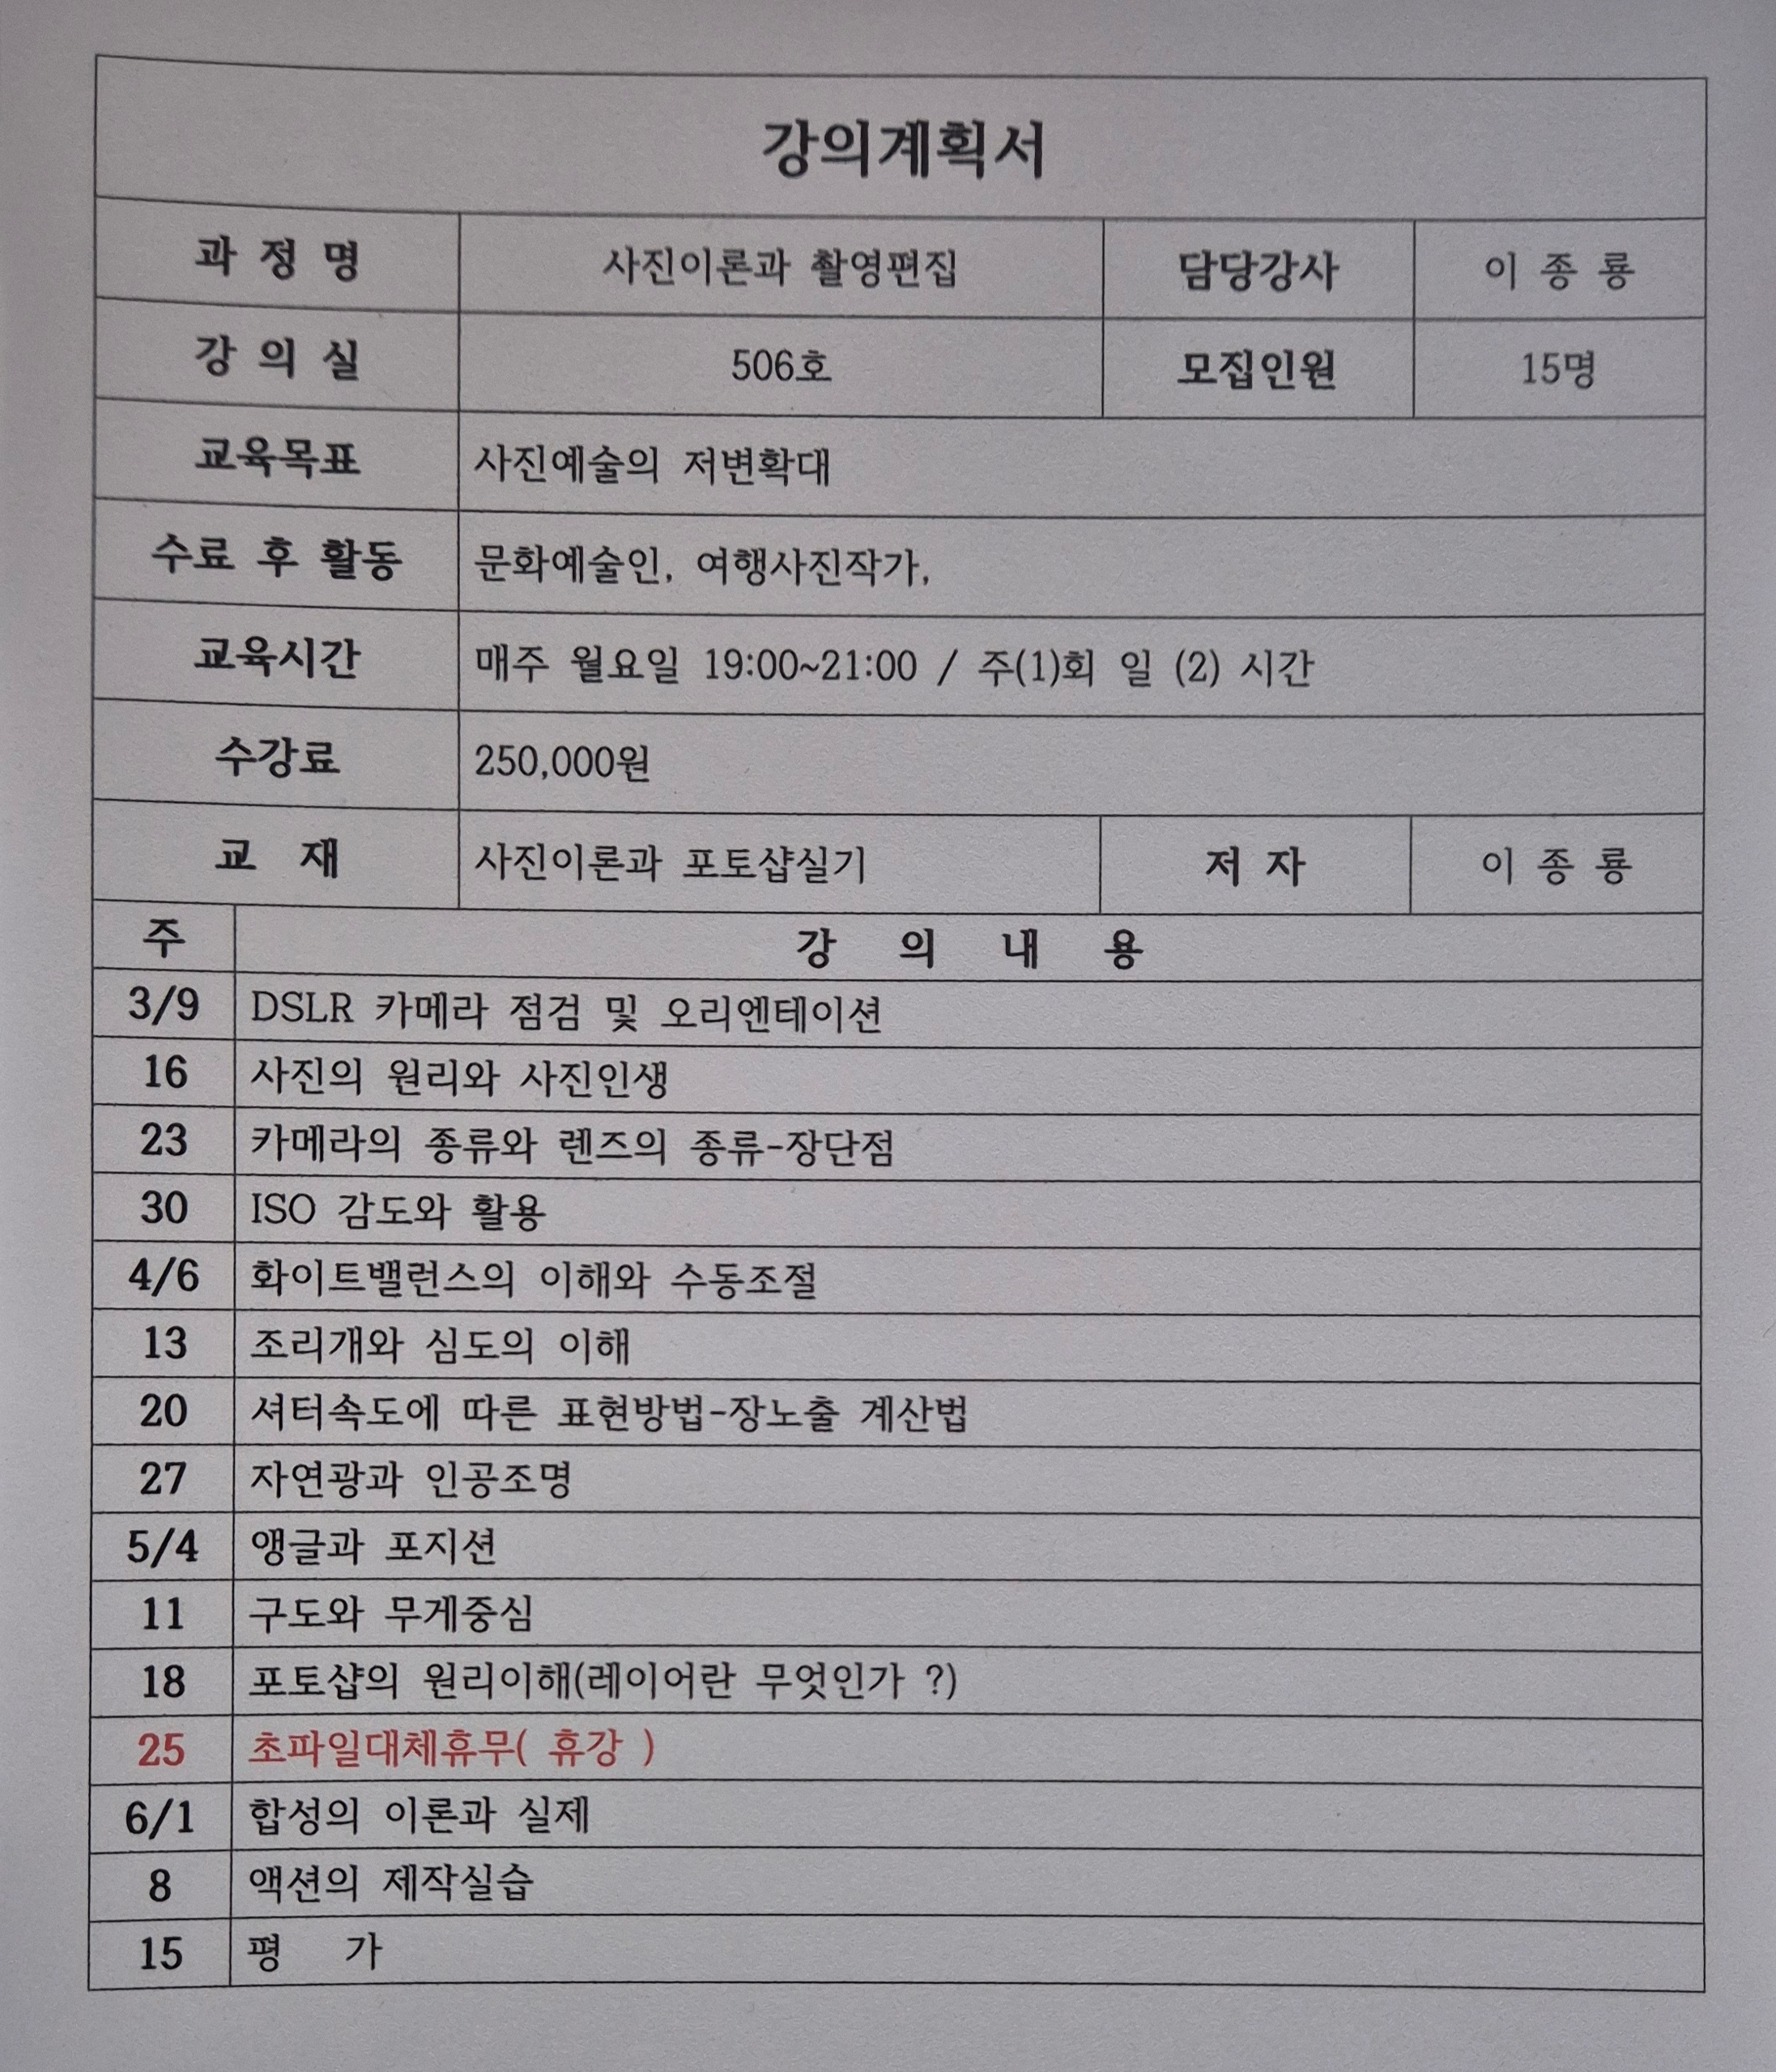 강의계획서
과 정 명 사진이론과 촬영편집 담당강사 이 종 룡
강 의 실 506호 모집인원 15명
교육목표 사진예술의 저변확대
수료 후 활동 문화예술인, 여행사진작가,
교육시간 매주 월요일 19:00~21:00 / 주(1)회 일 (2) 시간
수강료 250,000원
교 재 사진이론과 포토샵실기 저 자 이 종 룡
주 강 의 내 용
3/9 DSLR 카메라 점검 및 오리엔테이션
16 사진의 원리와 사진인생
23 카메라의 종류와 렌즈의 종류-장단점
30 ISO 감도와 활용
4/6 화이트밸런스의 이해와 수동조절
13 조리개와 심도의 이해
20 셔터속도에 따른 표현방법-장노출 계산법
27 자연광과 인공조명
5/4 앵글과 포지션
11 구도와 무게중심
18 포토샵의 원리이해(레이어란 무엇인가 ?)
25 초파일대체휴무( 휴강 )
6/1 합성의 이론과 실제
8 액션의 제작실습
15 평 가